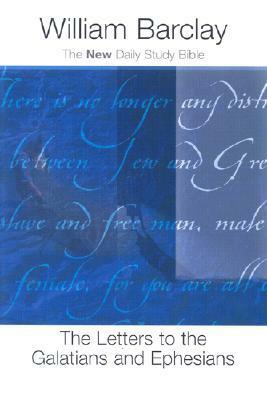 William Barclay
The New Daily Study Bible
there is no longer any distr
between Jew and Gre
slave and free man, male
female, for you are all
The Letters to the
Galatians and Ephesians